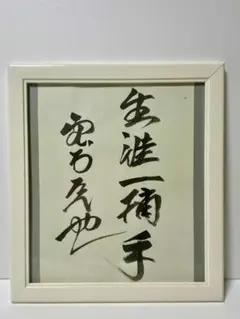 生涯一捕手
野村克也